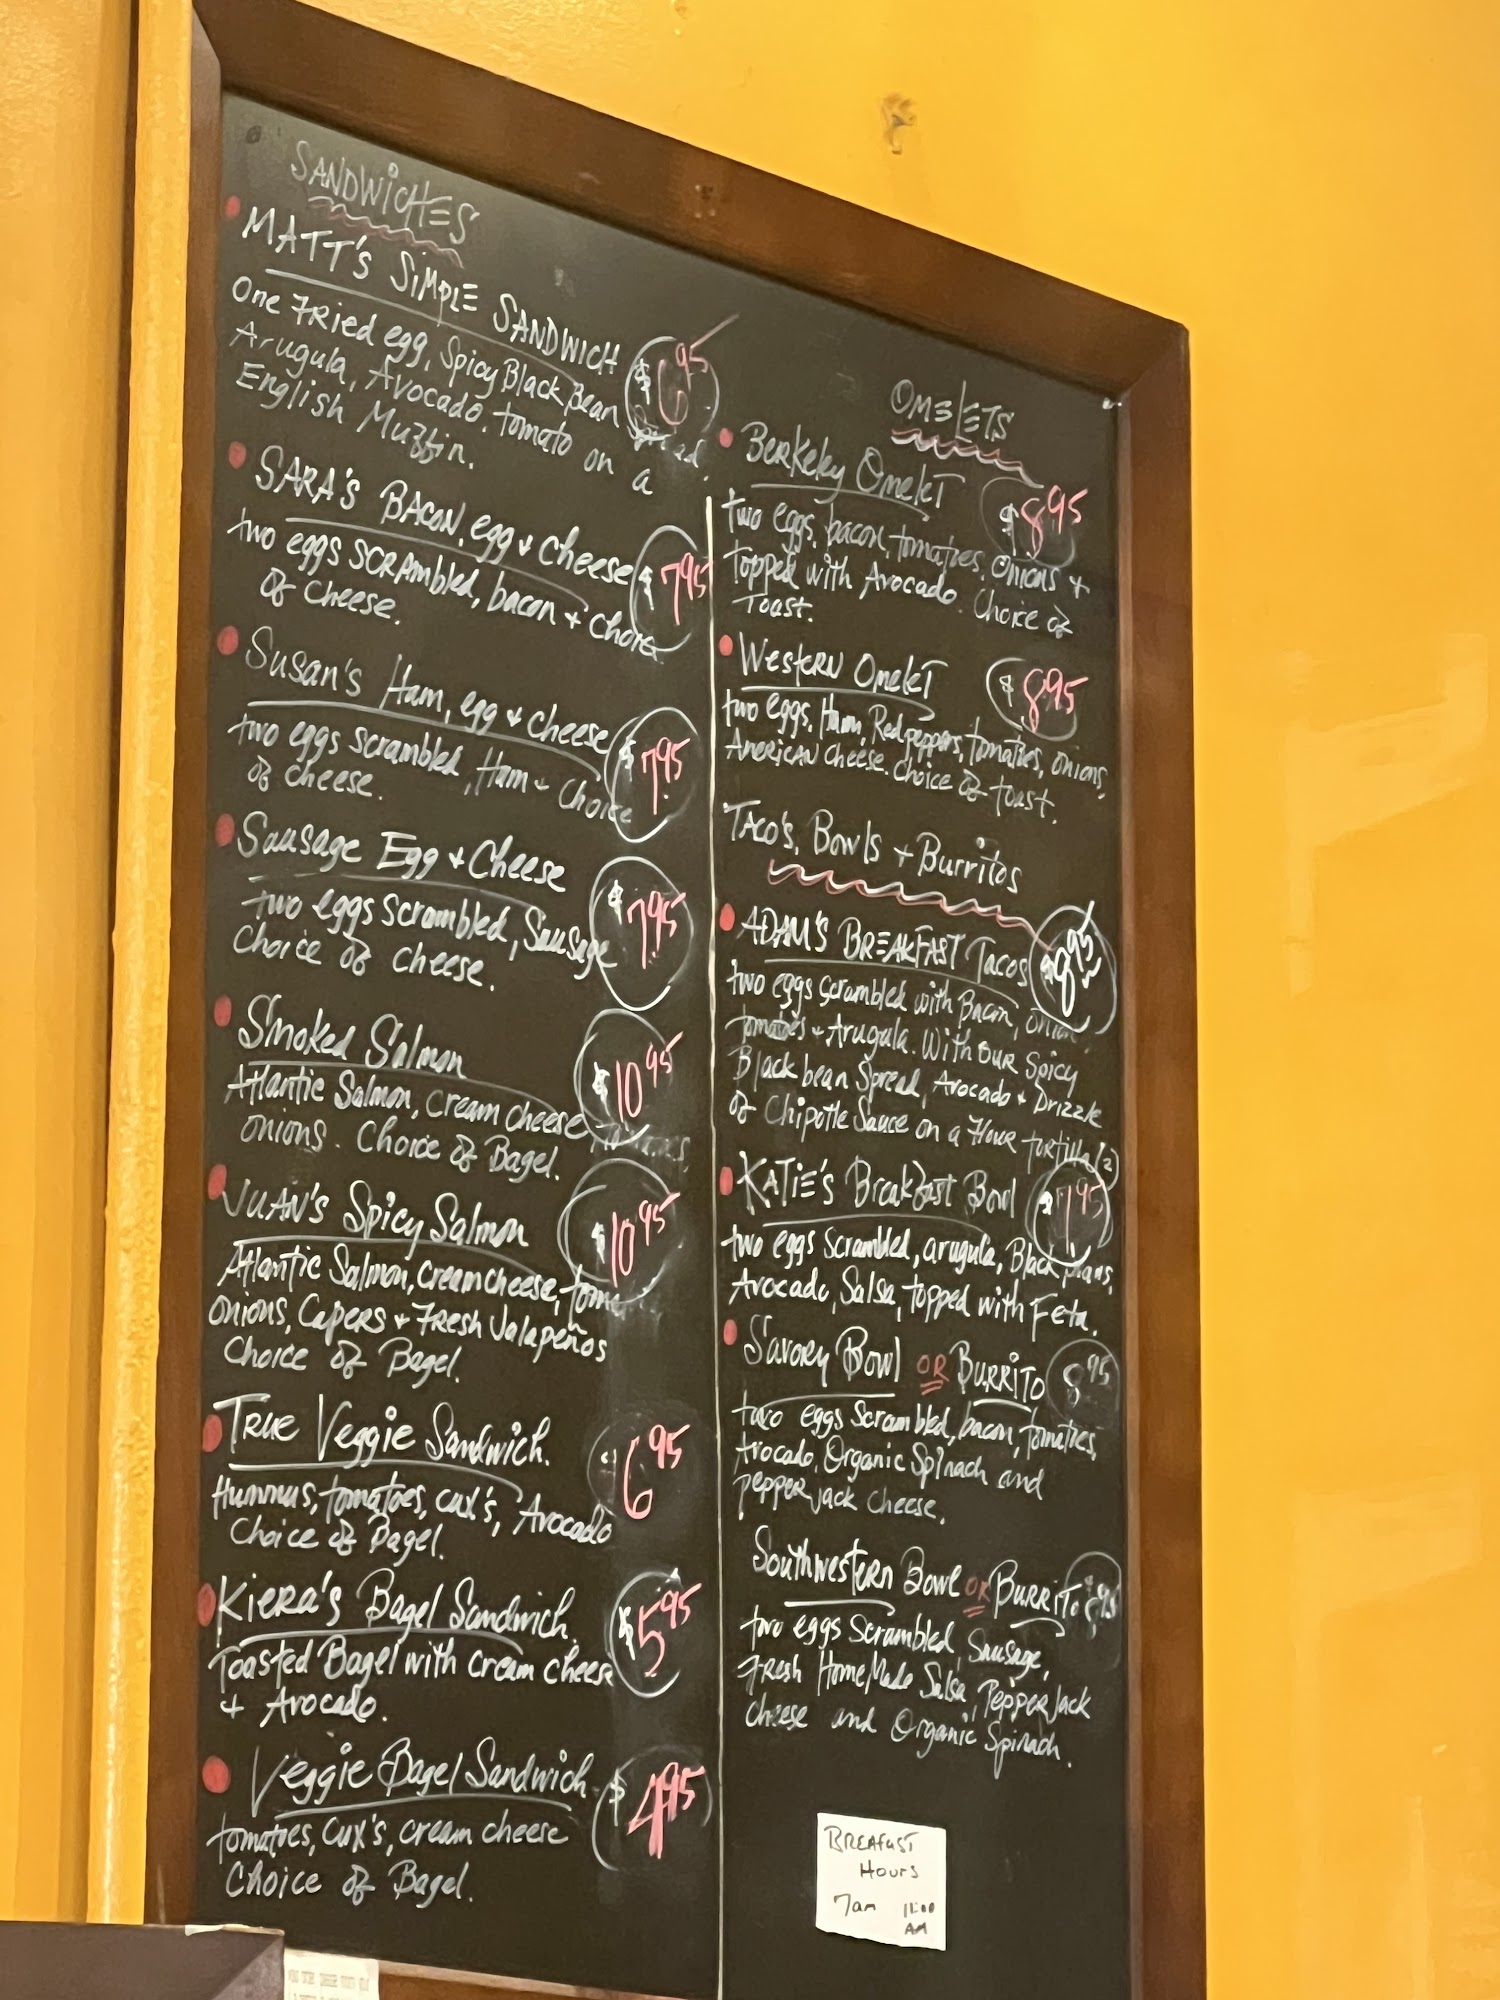 SANDWICHES
MATT'S SIMPLE SANDWICH $6.95
One Fried egg, Spicy Black Bean Spread,
Arugula, Avocado, tomato on a
English Muffin.
SARA'S BACON, egg + cheese $7.95
two eggs SCRAMbled, bacon + Choice
of cheese.
Susan's Ham, egg + cheese $7.95
two eggs scrambled, Ham + Choice
of cheese.
Sausage Egg + Cheese $7.95
two eggs scrambled, Sausage
Choice of cheese.
Smoked Salmon $10.95
Atlantic Salmon, cream cheese
onions. Choice of Bagel.
JUAN'S Spicy Salmon $10.95
Atlantic Salmon, cream cheese,
onions, Capers + Fresh Jalapeños
Choice of Bagel.
True Veggie Sandwich. 6.95
Hummus, tomatoes, cux's, Avocado
Choice of Bagel.
Kiera's Bagel Sandwich. $5.95
Toasted Bagel with cream cheese
+ Avocado.
Veggie Bagel Sandwich $4.95
tomatoes, cux's, cream cheese
Choice of Bagel.
OMELETS
Berkeley Omelet $8.95
two eggs, bacon, tomatoes, Onions +
topped with Avocado. Choice of
Toast.
Western Omelet $8.95
two eggs, Ham, Red peppers, tomatoes, onions,
American cheese. Choice of toast.
Taco's, Bowls + Burritos
ADAM'S BREAKFAST Tacos $8.95
two eggs scrambled with Bacon, onion
tomatoes + Arugula. With our Spicy
Black bean Spread, Avocado + Drizzle
of Chipotle Sauce on a Flour tortilla (2)
KATIE'S Breakfast Bowl $7.95
two eggs scrambled, arugula, Black beans,
Avocado, Salsa, topped with Feta.
Savory Bowl OR Burrito 8.95
two eggs scrambled, bacon, tomatoes,
Avocado, Organic Spinach and
pepper jack cheese.
Southwestern Bowl OR Burrito 8.95
two eggs Scrambled, Sausage,
Fresh HomeMade Salsa, Pepper Jack
cheese and Organic Spinach.
BREAFAST
Hours
7am 11:00
AM